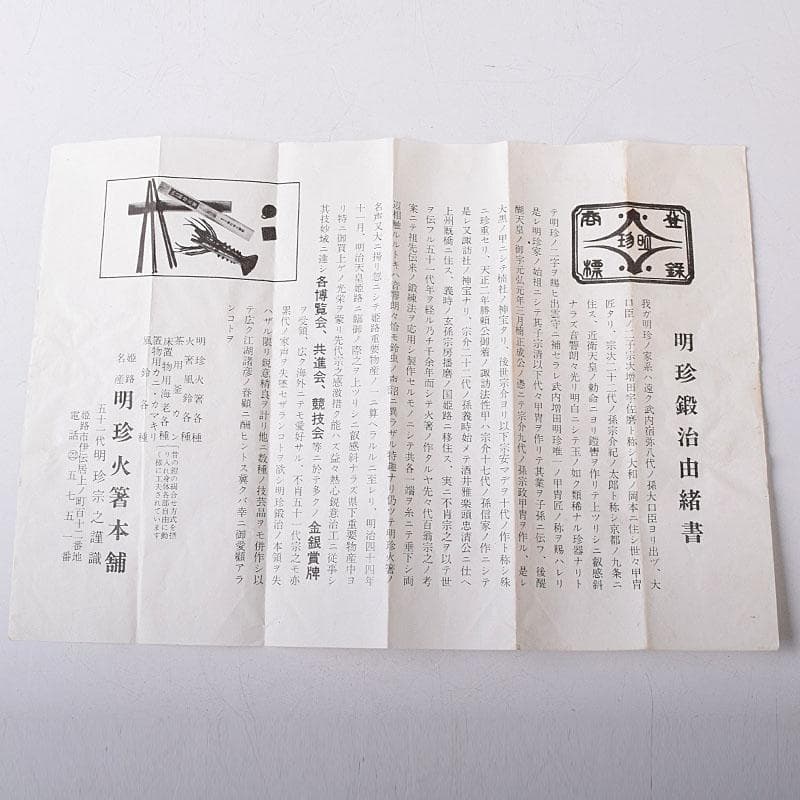 明珍鍛冶由緒書
登録
商標
明珍
我ガ明珍ノ家系ハ遠ク武内宿弥八代ノ孫大口臣ヨリ出ヅ、大
口臣ノ二子宗次増田宇佐磨ト称シ大和ノ岡本ニ住シ世々甲冑
匠タリ、宗次二十二代ノ孫宗介紀ノ太郎ト称シ京都ノ九条ニ
住ス、近衛天皇ノ勅命ニヨリ鎧冑ヲ作リテ上ツリシニ叡感斜
ナラズ音響朗々光リ明白ニシテ玉ノ如ク類稀ナル珍器ナリト
テ明珍ノ二字ヲ賜ヒ出雲守ニ補セラレ武内増田明珍唯一ノ甲冑匠ノ称ヲ賜ハレリ
是レ明珍家ノ始祖ニシテ其子宗清以下代々甲冑ヲ作リテ其業ヲ子孫ニ伝フ、後醍
醐天皇ノ御宇元弘元年三月楠正成公ノ憑ニテ宗介九代ノ孫宗政甲冑ヲ作ル、是レ
大黒ノ甲ニシテ楠社ノ神宝タリ、後世宗介ヨリ以下宗安マデヲ十代ノ作ト称シ殊
ニ珍重セリ、天正二年勝頼公御着ノ諏訪法性甲ハ宗介十七代ノ孫信家ノ作ニシテ
是レ又諏訪社ノ神宝ナリ、宗介二十二代ノ孫義時始メテ酒井雅楽頭忠清公ニ仕ヘ
上州厩橋ニ住ス、義時ノ玄孫宗房播磨ノ国姫路ニ移住ス、実ニ不肖宗之ヲ以テ世
ヲ伝フル五十一代年ヲ経ル乃チ千余年而シテ火箸ノ作タルヤ先々代百翁宗之ノ考
案ニテ祖先伝来ノ鍛練法ヲ応用シ製作セルモノニシテ共各一端ヲ糸ニテ垂下シ両
辺相触ルルトキハ音響朗々恰モ鈴虫ノ声沼ニ異ラザル特趣ナリ仍ツテ明珍火箸ノ
名声又大ニ揚リ郡ニシテ姫路重要物産ノ一ニ算ヘラルルニ至レリ、明治四十四年
十一月、明治天皇姫路ニ臨御ノ際之ヲ上ツリシニ叡感斜ナラズ県下重要物産中ヨ
リ特ニ御買上ゲノ光栄ヲ蒙リ先代宗之感激措ク能ハズ益々熱心鋭意治工ニ従事シ
其技妙域ニ達シ各博覧会、共進会、競技会等ニ於テ多クノ金銀賞牌
ヲ受領、広ク海外ニテモ愛好サル、不肖五十一代宗之モ亦
累代ノ家声ヲ失墜セザランコトヲ欲シ明珍鍛治ノ本領ヲ失
ハザル限リ鋭意精良ヲ計リ他ニ数種ノ技芸品ヲモ併作シ以
テ広ク江湖諸彦ノ眷顧ニ酬ヒントス冀クバ幸ニ御愛顧アラ
ンコトヲ
明珍火箸各種
火箸風鈴各種
茶用釜カン
床置物用海老各種
置物用カニ・カマキリ
風鈴各種
姫路名産 明珍火箸本舗
五十一代 明珍宗之謹識
姫路市伊伝居上ノ町百十二番地
電話㉒五七五一番